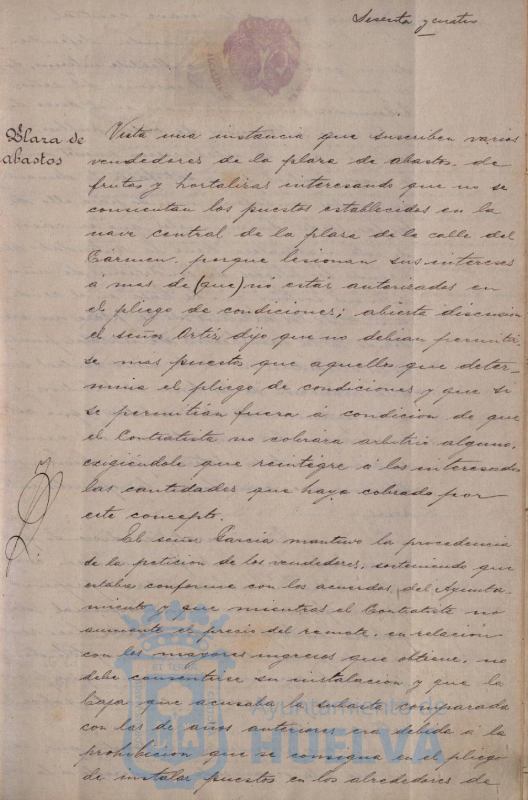 Sesenta y cuatro
Plaza de
abastos
Vista una instancia que suscriben varios
vendedores de la plaza de abastos, de
frutas y hortalizas interesando que no se
consientan los puestos establecidos en la
nave central de la plaza de la calle del
Cármen, porque lesionan sus intereses
á mas de (que) nó estár autorizados en
el pliego de condiciones; abierta discusion
el señor Ortiz dijo que no debian permitir-
se mas puestos que aquellos que deter-
mina el pliego de condiciones y que si
se permitian fuera á condicion de que
el Contratista no cobrára arbitrio alguno,
exigiéndole que reintegre á los interesados
las cantidades que haya cobrado por
este concepto.
El señor García mantuvo la procedencia
de la peticion de los vendedores, sosteniendo que
estaba conforme con los acuerdos del Ayunta-
miento y que mientras el Contratista no
aumente el precio del remate, en relación
con los mayores ingresos que obtiene, no
debe consentirse su instalacion y que la
baja que acusaba la subasta comparada
con las de años anteriores era debida á la
prohibicion que se consigna en el pliego
de instalar puestos en los alrededores de
Ayuntamiento
HUELVA